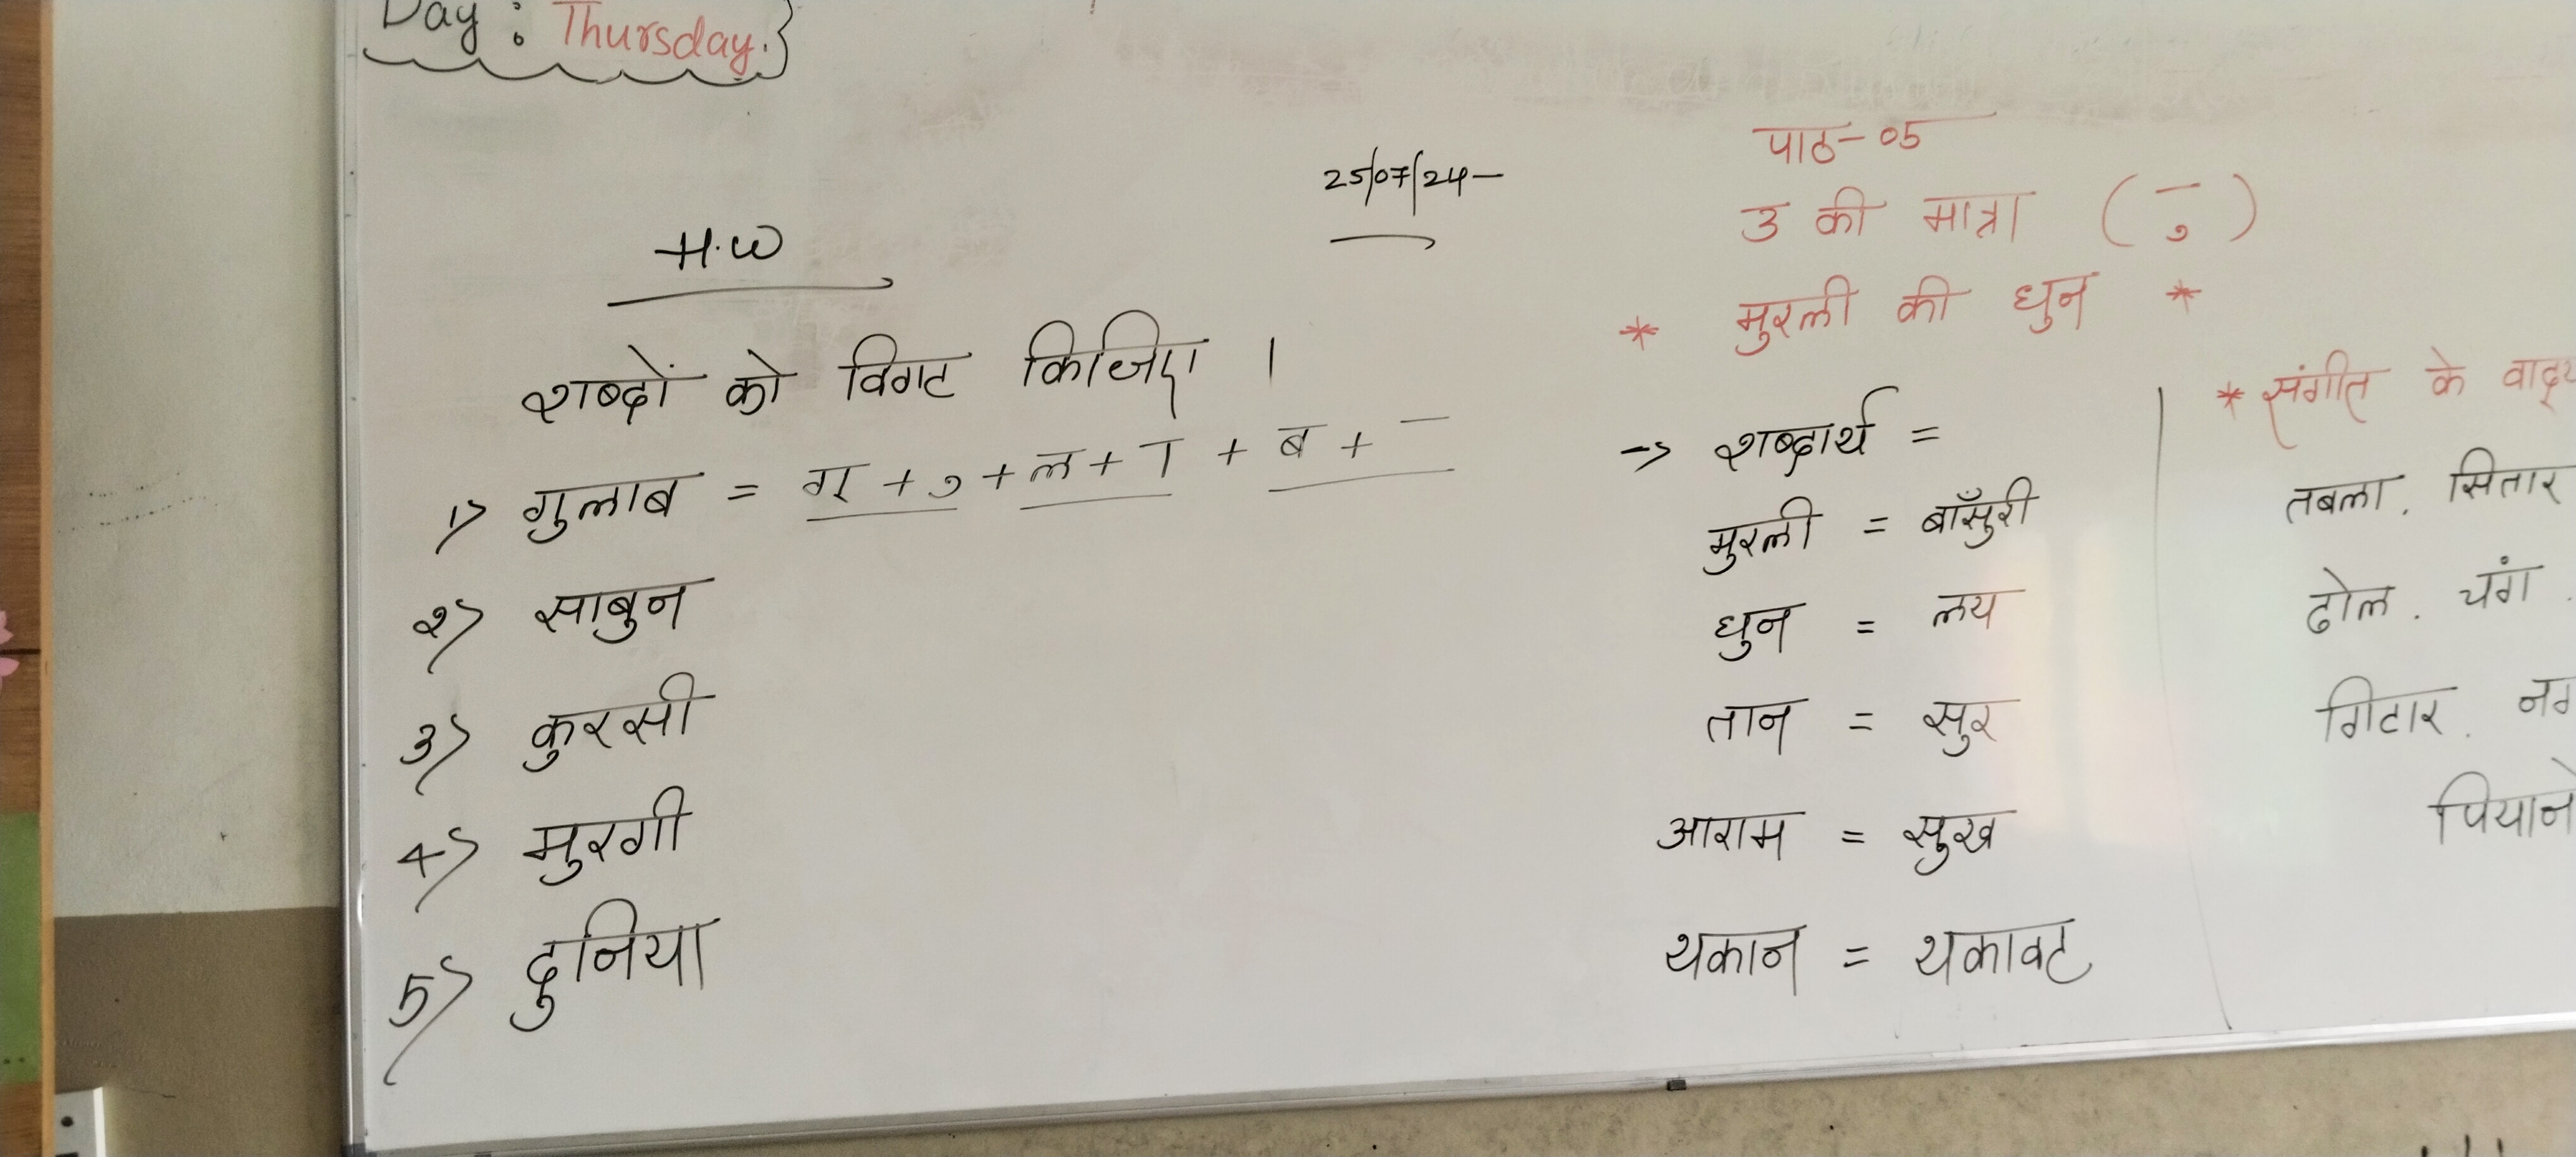 Day : Thursday.
25/07/24
H.W
शब्दों को विगट किजिए ।
1) गुलाब = ग + ु + ल + ा + ब + –
२) साबुन
3) कुरसी
4) मुरगी
5) दुनिया
पाठ-05
उ की मात्रा ( ु )
* मुरली की धुन *
-> शब्दार्थ =
मुरली = बाँसुरी
धुन = लय
तान = सुर
आराम = सुख
थकान = थकावट
* संगीत के
तबला. सितार
ढोल. चंग.
गिटार.